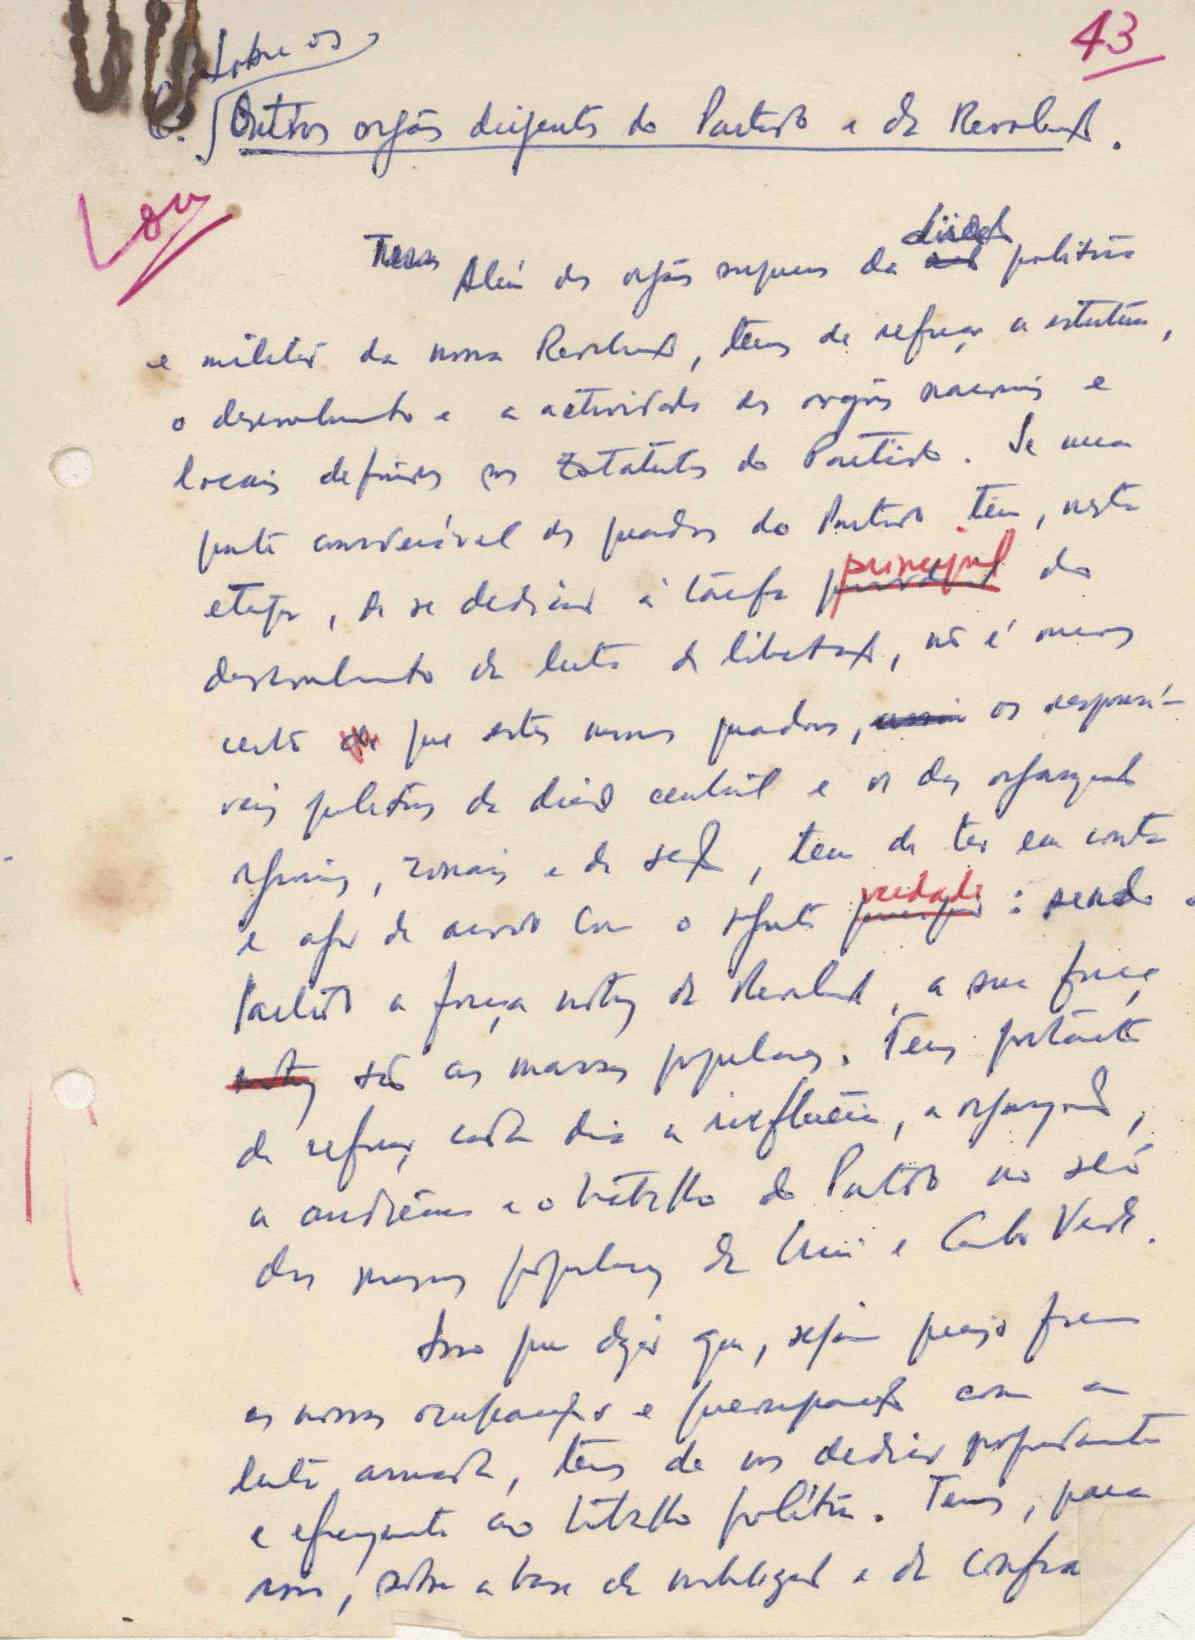 43
Sobre os
C. Outros orgãos dirigentes do Partido e da Revolução.
Lou
Temos Além dos orgãos supremos da direcção política
e militar da nossa Revolução, temos de reforçar a estrutura,
o desenvolvimento e a actividade dos orgãos nacionais e
locais definidos nos Estatutos do Partido. Se uma
parte considerável dos quadros do Partido tem, nesta
etapa, de se dedicar à tarefa principal do
desenvolvimento da luta de libertação, não é menos
certo que estes mesmos quadros, assim os responsá-
veis políticos da direcção central e os das organizações
regionais, zonais e de secção, tem de ter em conta
e agir de acordo com o seguinte verdade: sendo o
Partido a força motriz da Revolução, a sua força
motriz são as massas populares. Temos portanto
de reforçar cada dia a influência, a organização,
a audiência e o trabalho do Partido no seio
das massas populares da Guiné e Cabo Verde.
Isso quer dizer que, sejam quais forem
as nossas ocupações e preocupações com a
luta armada, temos de nos dedicar profundamente
e eficazmente ao trabalho político. Temos, para
isso, sobre a base da mobilização e da confiança